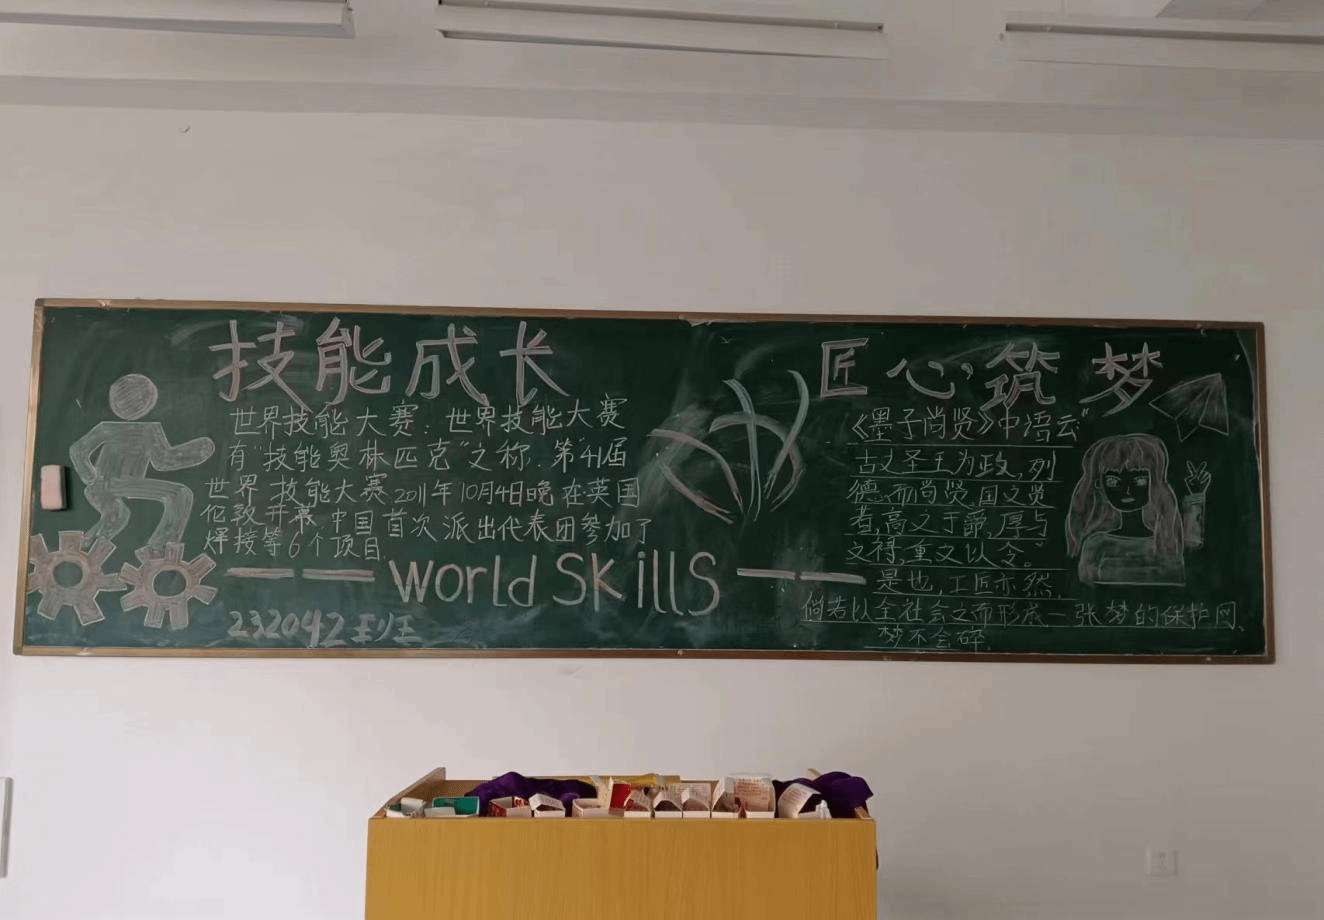 技能成长
世界技能大赛：世界技能大赛
有"技能奥林匹克"之称.第41届
世界技能大赛2011年10月4日晚在英国
伦敦开幕,中国首次派出代表团参加了
焊接等6个项目.
world SKills
232042班
匠心筑梦
《墨子尚贤》中语云"
古之圣王为政,列
德而尚贤,国之
者,高之予爵,厚与
之禄,重之以令。"
是也,工匠亦然,
倘若以全社会之而形成一张梦的保护网、
梦不会碎.